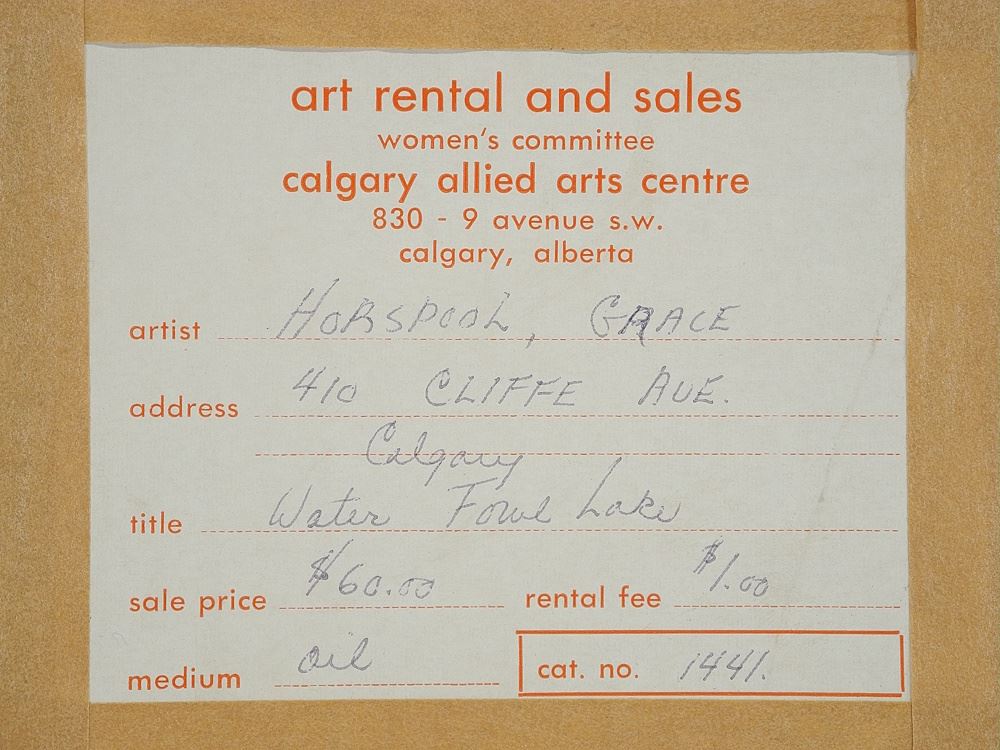 art rental and sales
women's committee
calgary allied arts centre
830 - 9 avenue s.w.
calgary, alberta
artist HORSPOOL, GRACE
address 410 CLIFFE AVE.
Calgary
title Water Fowl Lake
sale price $60.00 rental fee $1.00
medium oil cat. no. 1441.